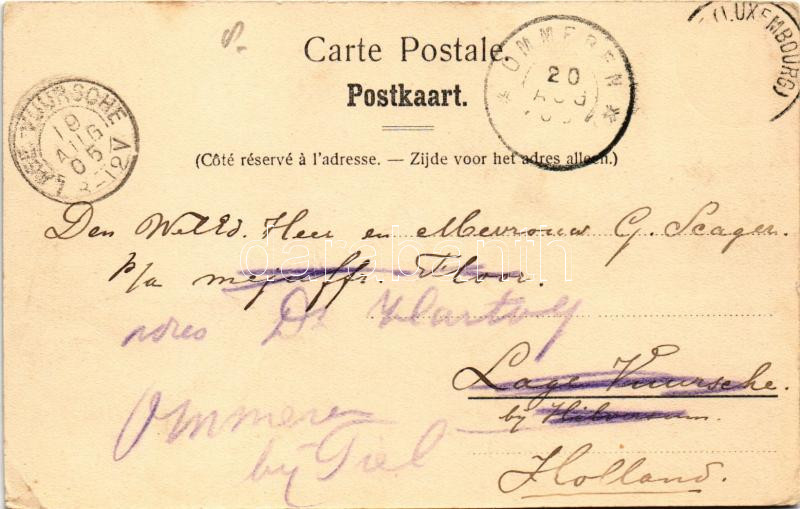 Carte Postale.
Postkaart.
(Côté réservé à l'adresse. — Zijde voor het adres alleen.)
OMMEREN
20
AUG
(LUXEMBOURG)
LAGE-VUURSCHE
19
AUG
05
8-12V
Den WelEd. Heer en Mevrouw G. Scager.
p/a mejuffr. Floor.
adres Ds Hartog
Lage Vuursche.
by Hilversum.
Ommeren
bij Tiel
Holland.
darabanth